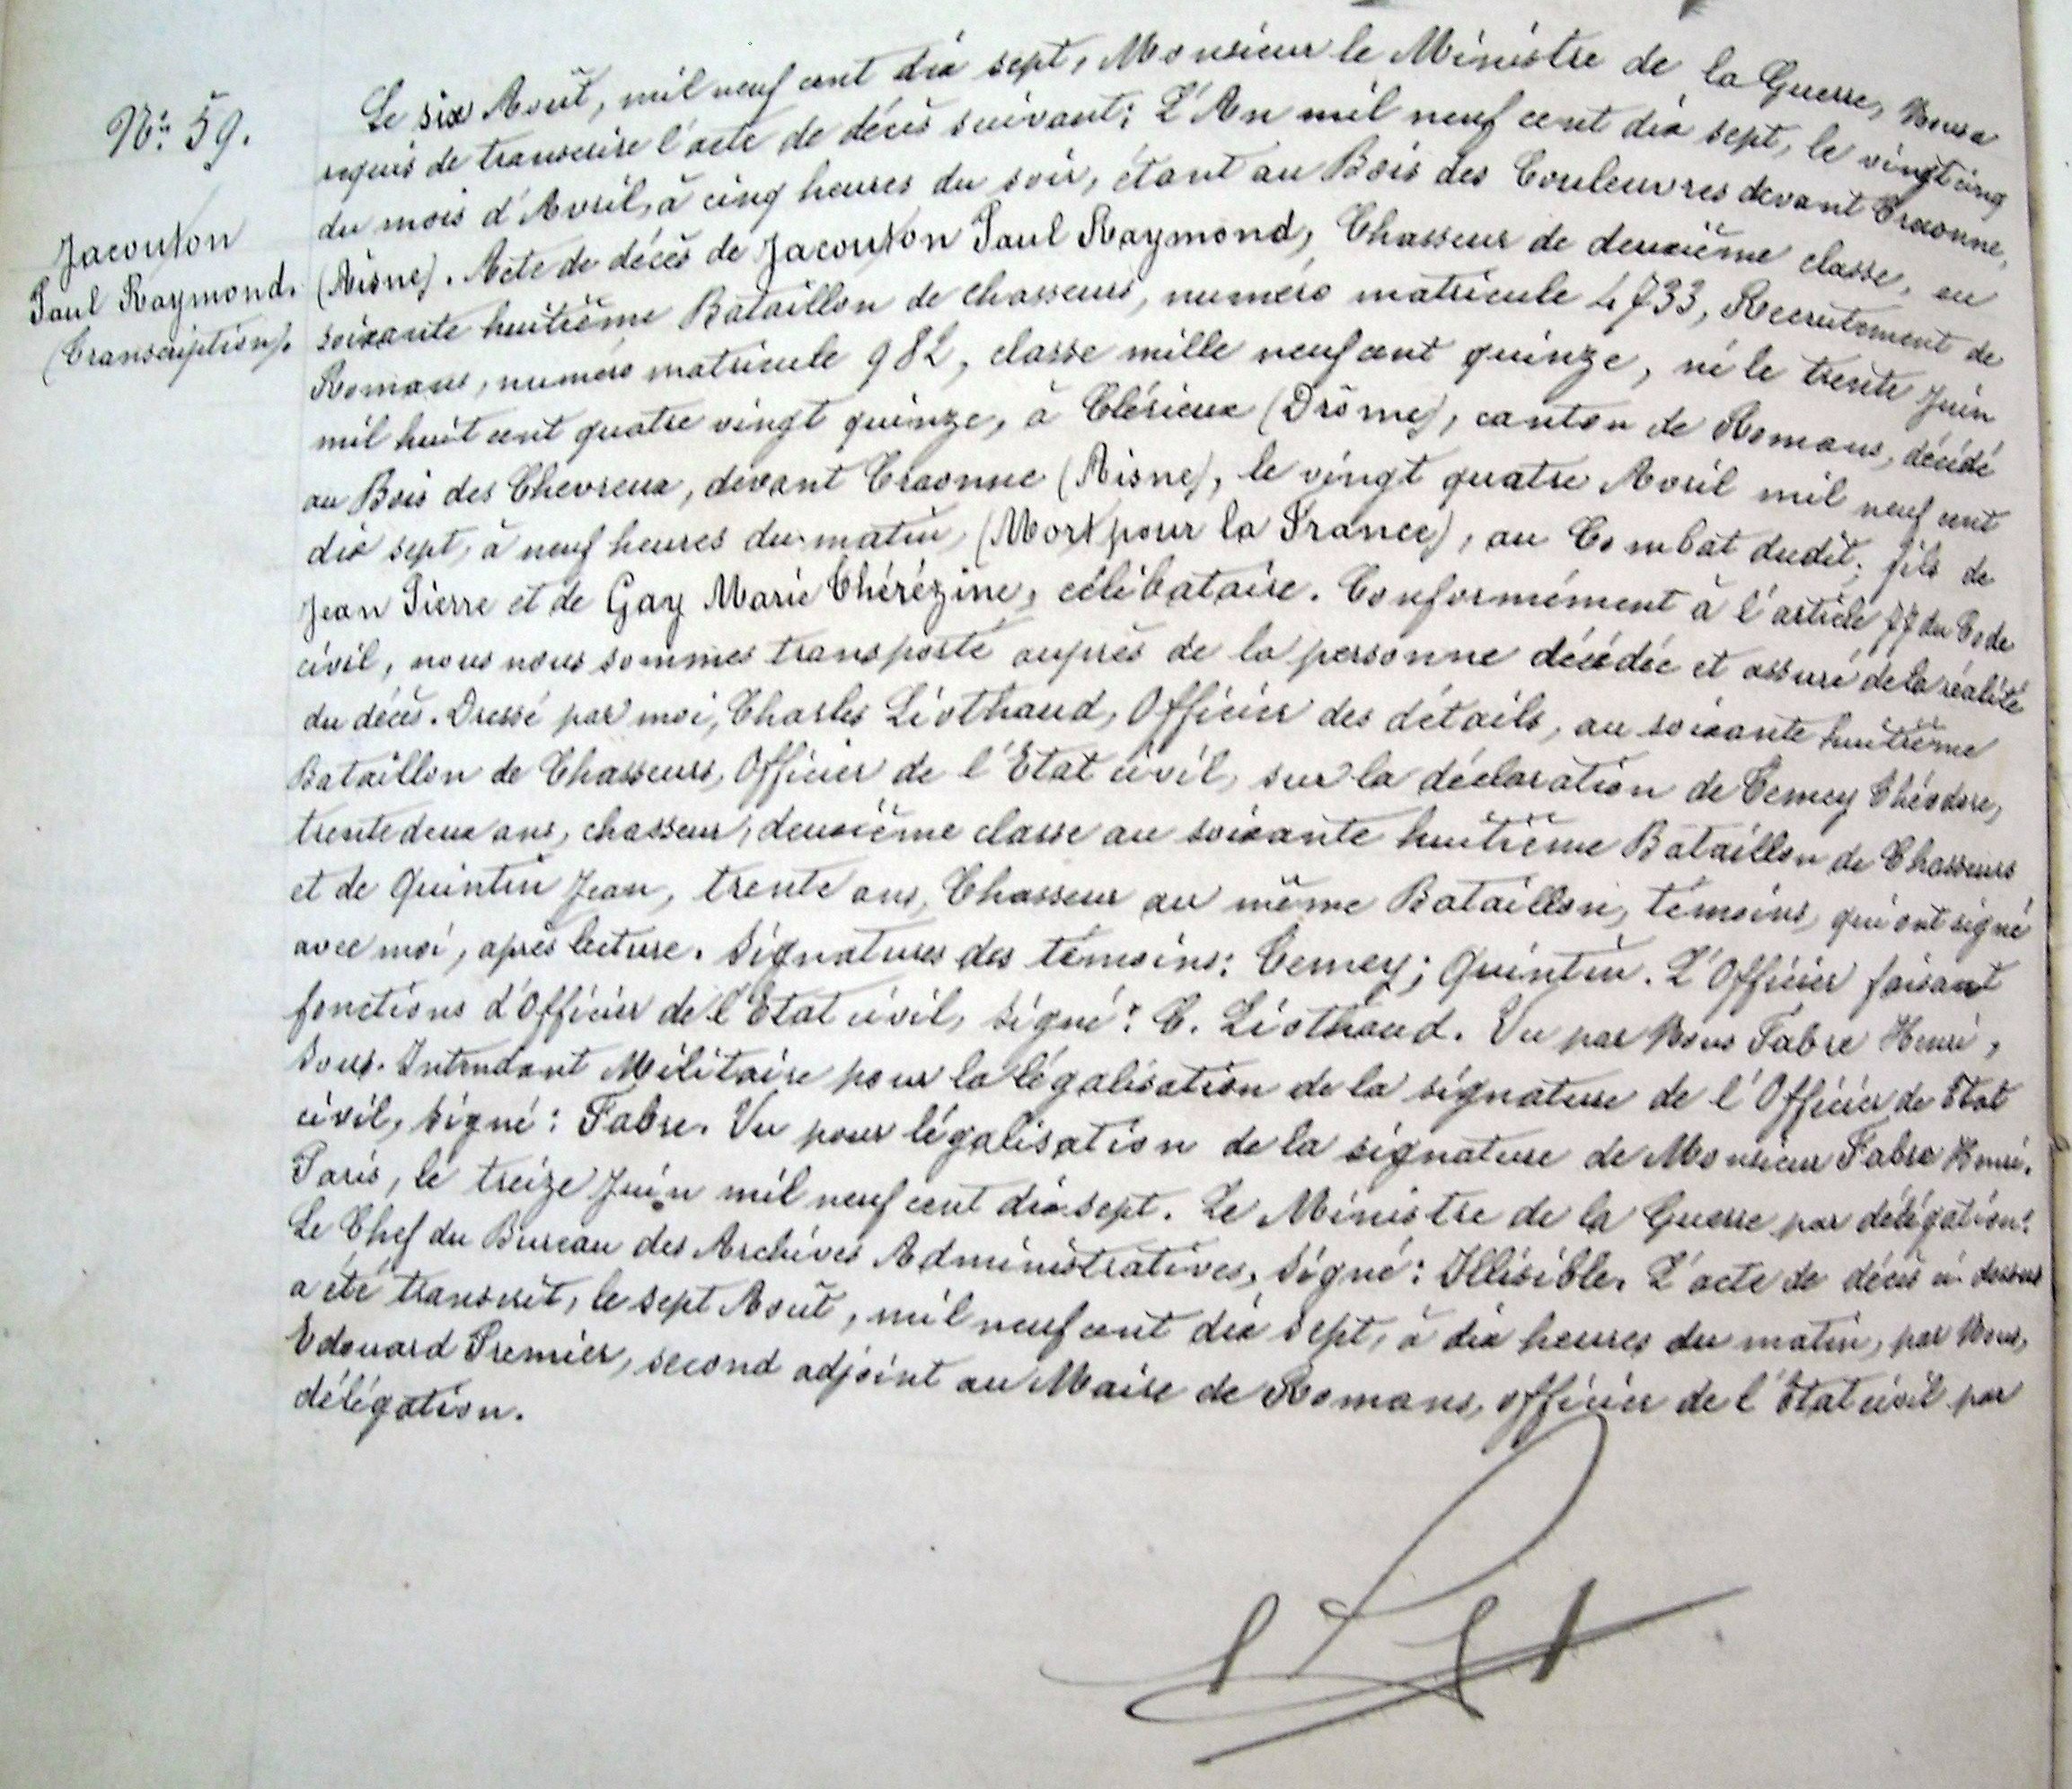 N° 59.
Jacouton
Paul Raymond.
(Transcription).
Le six Août, mil neuf cent dix sept, Monsieur le Ministre de la Guerre, Nous a
requis de transcrire l'acte de décès suivant; L'An mil neuf cent dix sept, le vingt cinq
du mois d'Avril, à cinq heures du soir, étant au Bois des Couleuvres devant Craonne,
(Aisne). Acte de décès de Jacouton Paul Raymond, Chasseur de deuxième classe, au
soixante huitième Bataillon de chasseurs, numéro matricule 4733, Recrutement de
Romans, numéro matricule 982, classe mille neuf cent quinze, né le trente Juin
mil huit cent quatre vingt quinze, à Clérieux (Drôme), canton de Romans, décédé
au Bois des Chevreux, devant Craonne (Aisne), le vingt quatre Avril mil neuf cent
dix sept, à neuf heures du matin, (Mort pour la France), au Combat dudit, fils de
Jean Pierre et de Gay Marie Thérézine, célibataire. Conformément à l'article 77 du Code
civil, nous nous sommes transporté auprès de la personne décédée et assuré de la réalité
du décès. Dressé par moi, Charles Liothaud, Officier des détails, au soixante huitième
Bataillon de Chasseurs, Officier de l'Etat civil, sur la déclaration de Temey Théodore,
trente deux ans, chasseur, deuxième classe au soixante huitième Bataillon de Chasseurs
et de Quintin Jean, trente ans, Chasseur au même Bataillon, témoins, qui ont signé
avec moi, après lecture. Signatures des témoins: Temey; Quintin. L'Officier faisant
fonctions d'Officier de l'Etat civil, signé: C. Liothaud. Vu par Nous Fabre Henri,
Sous-Intendant Militaire pour la légalisation de la signature de l'Officier de Etat
civil, signé: Fabre. Vu pour légalisation de la signature de Monsieur Fabre Henri.
Paris, le treize Juin mil neuf cent dix sept. Le Ministre de la Guerre par délégation:
Le Chef du Bureau des Archives Administratives, Signé: Illisible. L'acte de décès ci-dessus
a été transcrit, le sept Août, mil neuf cent dix sept, à dix heures du matin, par Nous,
Edouard Premier, second adjoint au Maire de Romans, officier de l'Etat civil par
délégation.